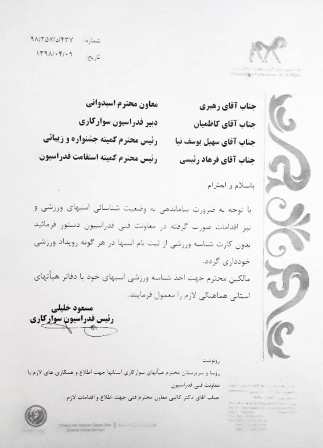 شماره: ۹۸/۲۵۷/د/۴۳۷
تاریخ: ۱۳۹۸/۰۴/۰۹
جناب آقای رهبری معاون محترم اسبدوانی
جناب آقای کاظمیان دبیر فدراسیون سوارکاری
جناب آقای سهیل یوسف نیا رئیس محترم کمیته جشنواره و زیبائی
جناب آقای فرهاد رئیسی رئیس محترم کمیته استقامت فدراسیون
باسلام و احترام
با توجه به ضرورت ساماندهی به وضعیت شناسائی اسبهای ورزشی و
نیز اقدامات صورت گرفته در معاونت فنی فدراسیون دستور فرمائید
بدون کارت شناسه ورزشی از ثبت نام اسبها در هر گونه رویداد ورزشی
خودداری گردد.
مالکین محترم جهت اخذ شناسه ورزشی اسبهای خود با دفاتر هیأتهای
استانی هماهنگی لازم را معمول فرمایند.
مسعود خلیلی
رئیس فدراسیون سوارکاری
رونوشت
روسا و سرپرستان محترم هیأتهای سوارکاری استانها جهت اطلاع و همکاری های لازم با
معاونت فنی فدراسیون
جناب آقای دکتر معاون محترم فنی جهت اطلاع و اقدامات لازم